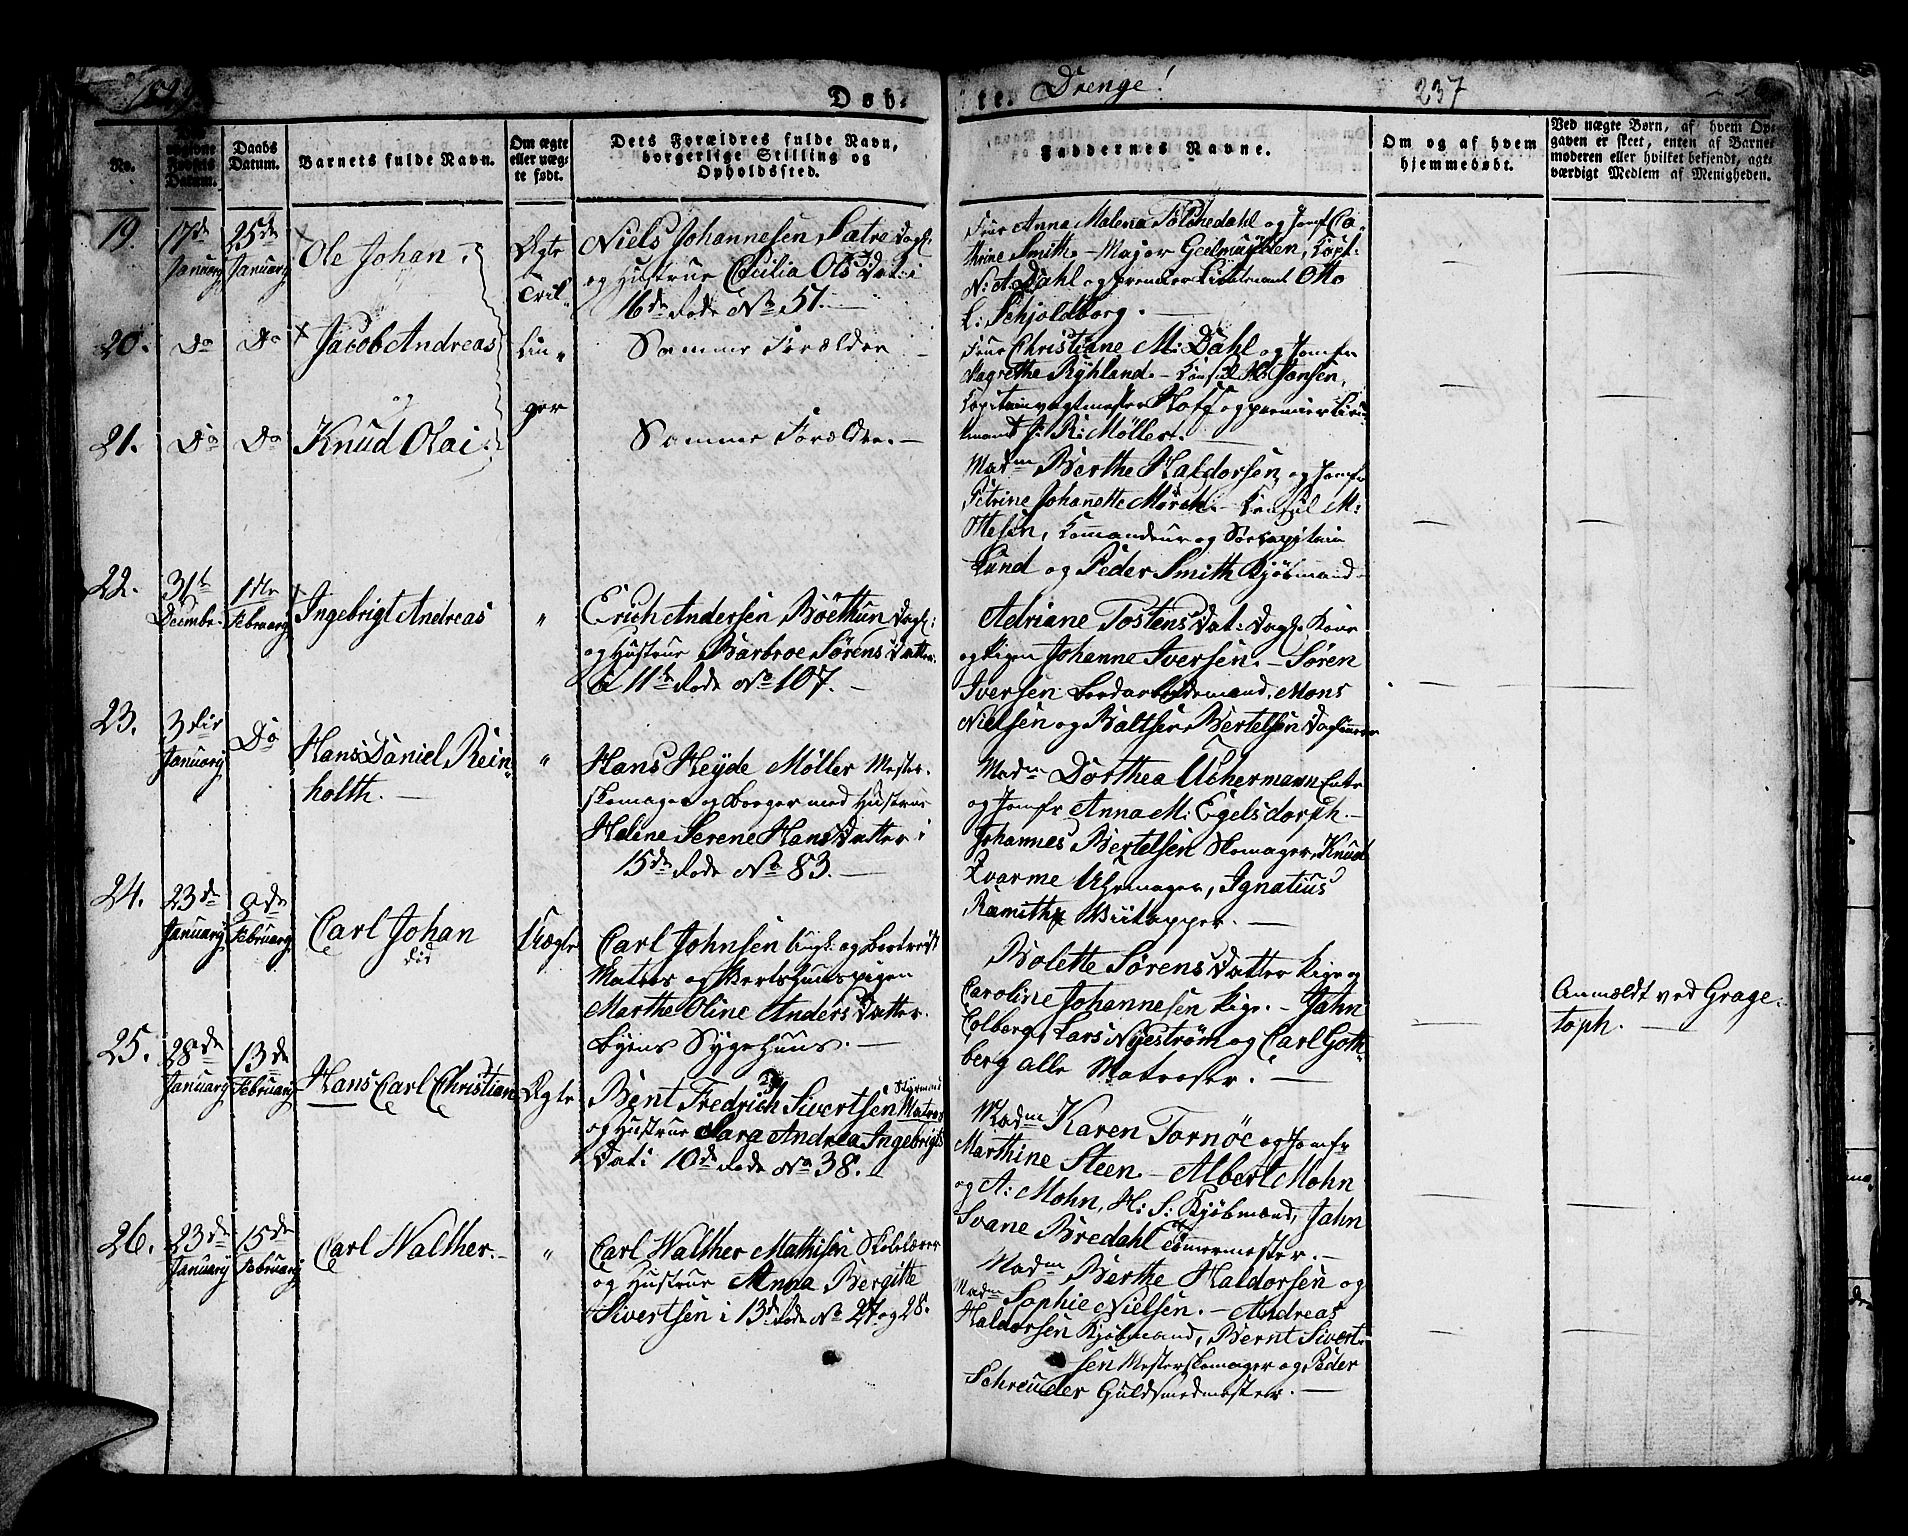 1829.
Døb- te. Drenge! 237
No.
Fødsels Datum.
Daabs Datum.
Barnets fulde Navn.
Om ægte eller uæg- te født.
Dets Forældres fulde Navn, borgerlige Stilling og Opholdssted.
Faddernes Navne.
Om og af hvem hjemmedøbt.
Ved uægte Børn, af hvem Op- gaven er skeet, enten af Barne- moderen eller hvilket bekjendt, agt- værdigt Medlem af Menigheden.
19. 17de January 25de January Ole Johan. Ægte
Niels Johannesen Sætre Dagk:
og Hustrue Cecilia Ols Dat: i
16de Rode No 51. —
Frue Anna Malena Dahl og Jomf Ca-
thrine Smith. — Major Geelmuyden, Capt:
N: A: Dahl og premier Lieutenant Otto
L: Schjoldborg. —
20. Do Do Jacob Andreas
Tvil- lin- ger
Samme Forældre —
Frue Christiane M: Dahl og Jomfr
Dagrethe Ryhland. — Consul H: Jansen,
Capitainvagtmester Hoff og premier Lieu-
tnant J: R: Møller. —
21. Do Do og Knud Olai.
Samme Forældre. —
Madm Berthe Haldorsen og Jomfr
Petrine Johanette Mørch. — Consul M:
Ottesen, Commandeur og Søecapitain
Lund og Peder Smith Kjøbmand. —
22. 31te Decembr. 1ste February Ingebrigt Andreas "
Erich Andersen Böethun Dagk:
og Hustrue Barbroe Sørens Datter
i 11te Rode No 107. —
Adriane Tostens Dat: Dagk: Kone
og Pigen Johanne Iversen. — Søren
Iversen Bordarbeidsmand, Mons
Nielsen og Baltser Bertelsen Dagkarrer
23. 3die January Do Hans Daniel Rein-
holth. — "
Hans Heyde Møller Mester-
skomager og borger med Hustrue
Helene Serene Hans Datter i
15de Rode No 83. —
Madm Dorthea Uchermann Enke
og Jomfr Anna M: Egelsdorph. —
Johannes Bertelsen Skomager, Knud
Zvarme Uhrmager, Ignatius
Viintapper. —
24. 23de January 8de February Carl Johan
död
Uægte
Carl Johnsen Ungk: og bortreist
Matros og Vertshuuspigen
Marthe Oline Anders Datter.
Byens Sygehuus. —
Bolette Sørens Datter Pige og
Caroline Johannesen Pige. — Jahn
Colberg, Lars Nyestrøm og Carl Goth-
berg alle Matroser. —
Anmældt ved Grage-
toph. —
25. 28de January 13de February Hans Carl Christian Ægte
Bent Fredrich Sivertsen Styrmand Matros
og Hustrue Sara Andrea Ingebrigts
Dat i 10de Rode No 38. —
Madm Karen Tornöe og Jomfr
Marthine Steen. — Albert Mohn
og A: Mohn, H: S: Kjøbmænd, Jahn
Svane Bredahl Tømmermester. —
26. 23de January 15de February Carl Walther. — "
Carl Walther Mathisen Skolelærer
og Hustrue Anna Bergitte
Sivertsen i 13de Rode No 27 og 28.
Madm Berthe Haldorsen og
Madm Sophie Nielsen. — Andreas
Haldorsen Kjøbmand, Bernt Sivert-
sen Mesterskomager og Peder
Schreuder Guldsmedmester. —